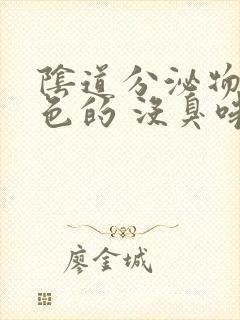 陰道分泌物
色的 沒臭味
廖金城